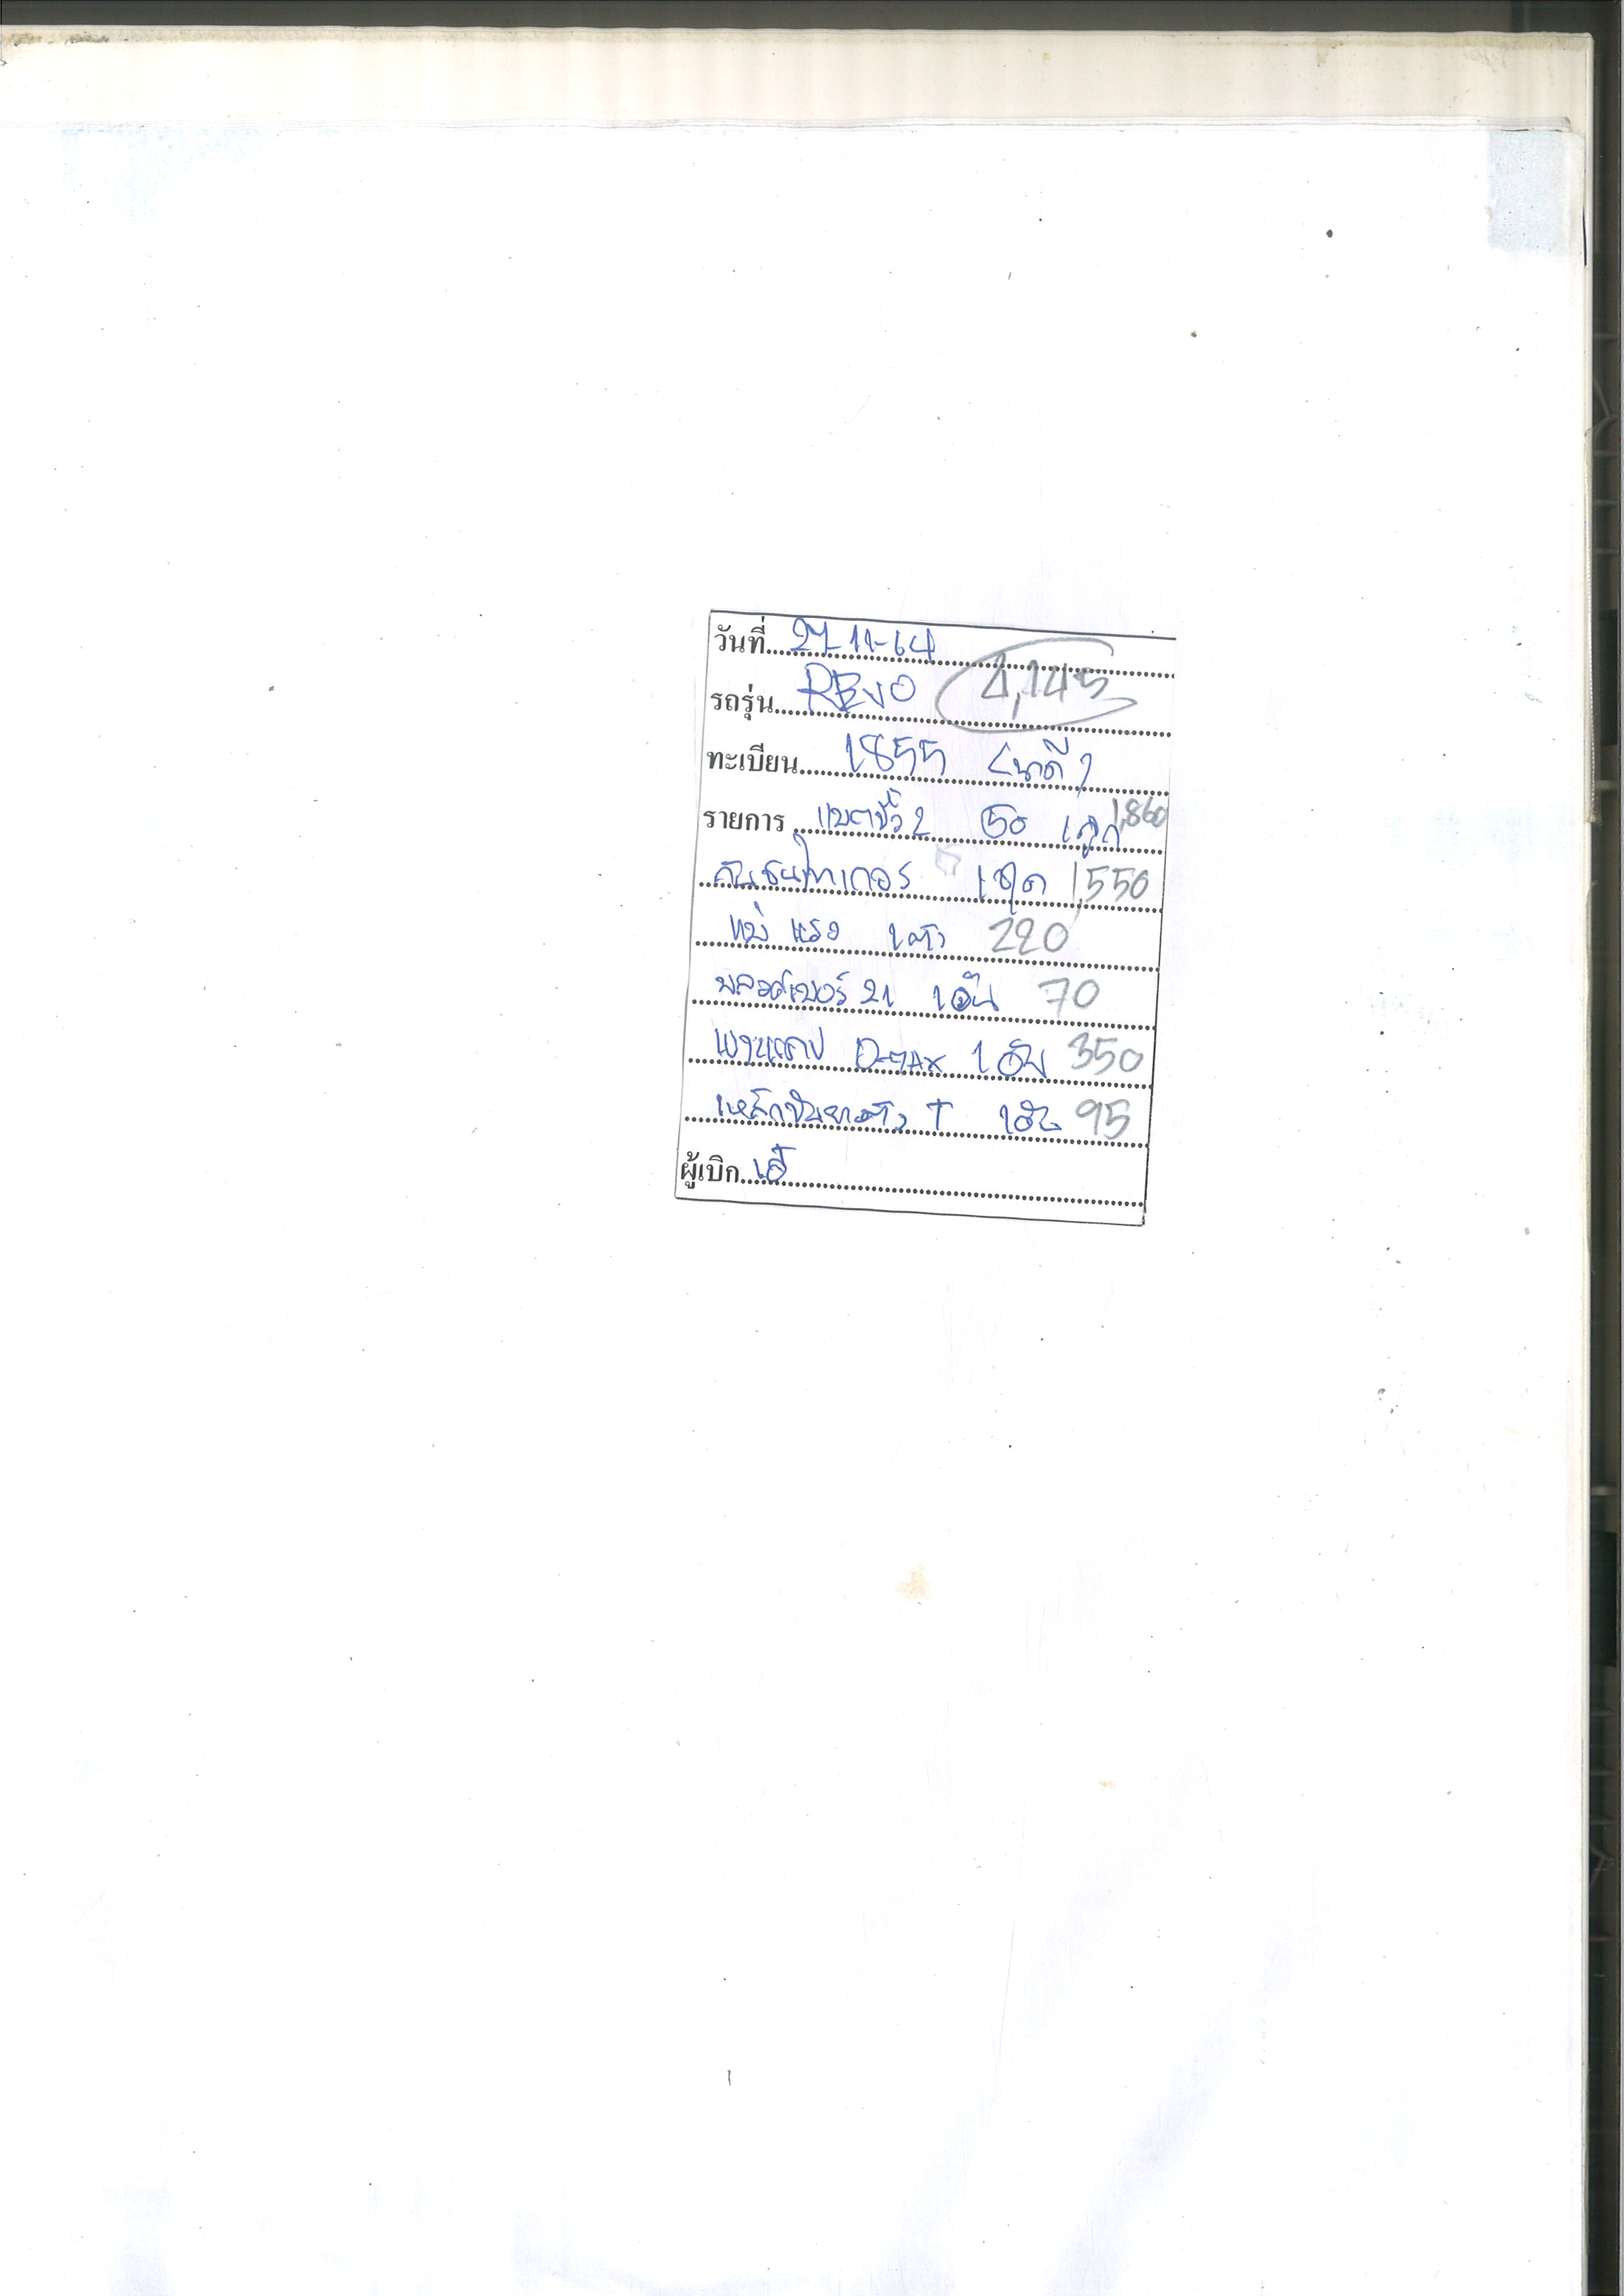 วันที่ 27-11-64
รถรุ่น REVO 4,145
ทะเบียน 1855 (นาดี)
รายการ แบตขั้ว 2 50 1ลูก 1,860
กันชนไทเกอร์ 1ชุด 1,550
แม่แรง 1ตัว 220
บล็อกเบอร์ 21 1อัน 70
D-MAX 1อัน 350
เหล็กขันยางตัว T 1อัน 95
ผู้เบิก เอ้